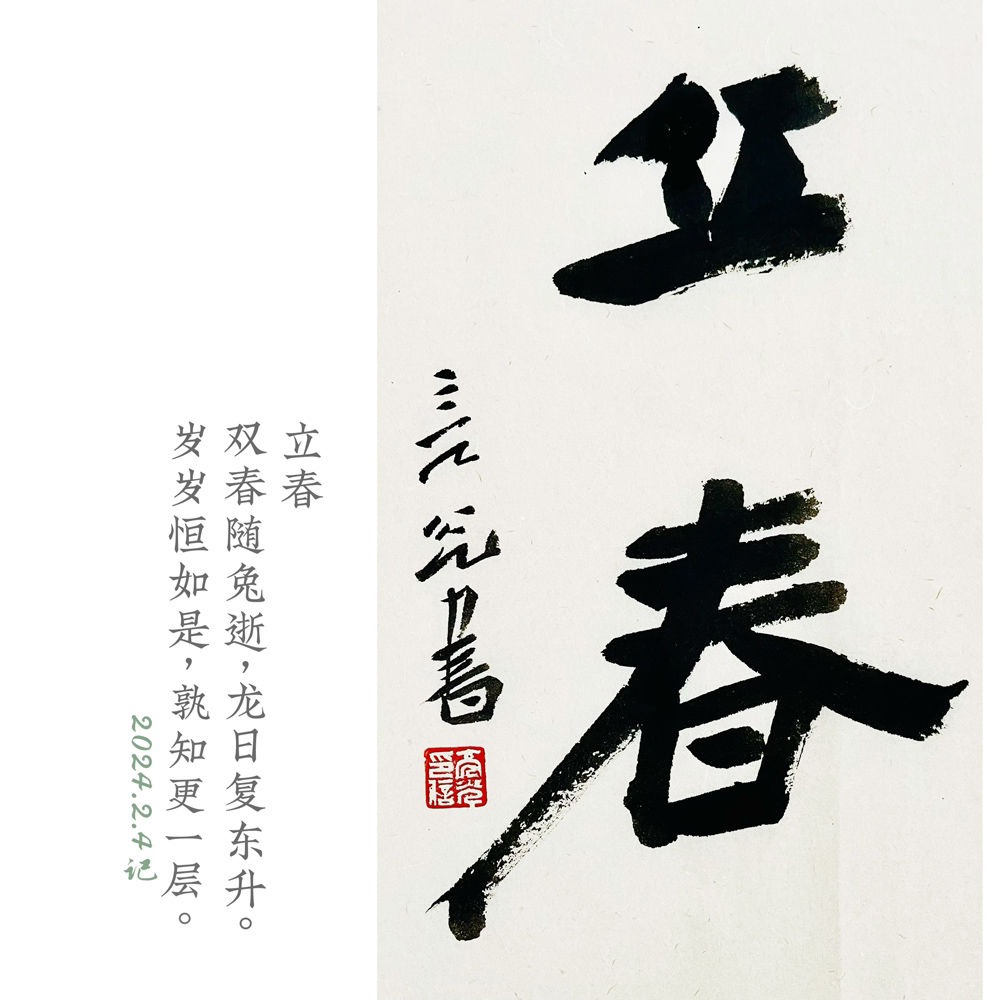 立春
书
立春
双春随兔逝，龙日复东升。
岁岁恒如是，孰知更一层。
2024.2.4 记